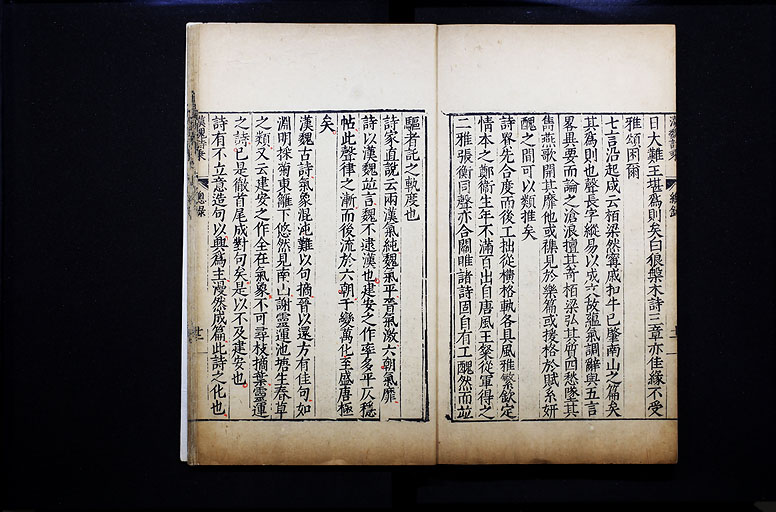 日大難王堪為則矣白狼槃木詩三章亦佳緣不受
雅頌困爾
七言沿起咸云栢梁然甯戚扣牛已肇南山之篇矣
其為則也聲長字縱易以成文故蘊氣調辭與五言
畧異要而論之滄浪擅其奇栢梁弘其質四愁墜其
雋燕歌開其靡他或雜見於樂篇或援格於賦系妍
醜之間可以類推矣
詩畧先合度而後工拙從橫格軌各具風雅繁欽定
情本之鄭衛生年不滿百出自唐風王粲從軍得之
二雅張衡同聲亦合關雎諸詩固自有工醜然而並
驅者託之軌度也
詩家直說云兩漢氣純魏氣平晉氣激六朝氣靡
詩以漢魏並言魏不逮漢也建安之作率多平仄穩
帖此聲律之漸而後流於六朝千變萬化至盛唐極
矣
漢魏古詩氣象混沌難以句摘晉以還方有佳句如
淵明採菊東籬下悠然見南山謝靈運池塘生春草
之類又云建安之作全在氣象不可尋枝摘葉靈運
之詩已是徹首尾成對句矣是以不及建安也
詩有不立意造句以興為主漫然成篇此詩之化也
漢魏詩乘
總錄